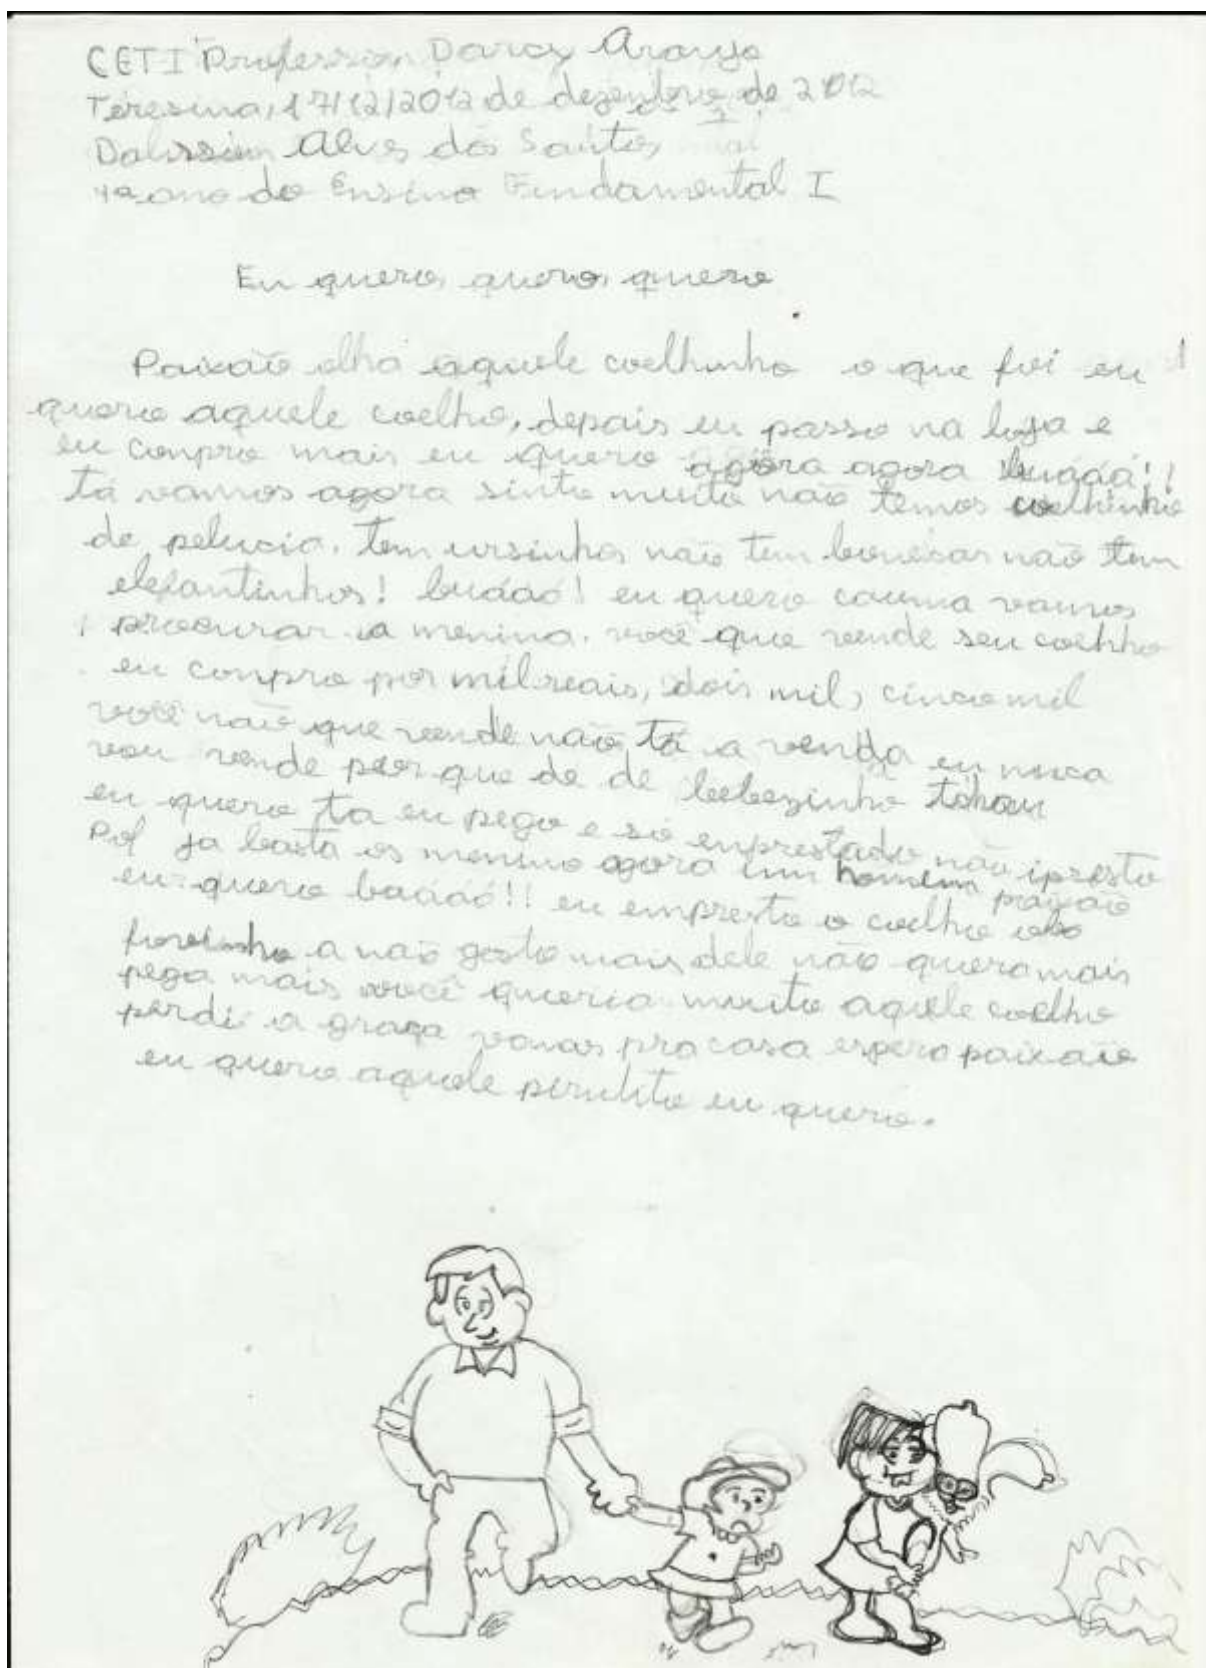 CETI Professor Darcy Araujo
Teresina, 17/12/2012 de dezembro de 2012
Alves dos Santos
4º ano do Ensino Fundamental I
Eu quero, quero, quero
Paixão olha aquele coelhinho o que foi eu
quero aquele coelho, depais eu passo na loja e
eu conpro mais eu quero agora agora buááá!!
tá vamos agora sinto muito não temos coelhinho
de pelucia. tem ursinhos não tem bonecas não tem
elefantinhos! buááá! eu quero cauma vamos
procurar a menina. você que vende seu coelho
eu conpro por mil reais, dois mil, cinco mil
você não que vende não tá a venda eu nuca
vou vende por que de de bebezinho
eu quero ta eu pego e so enprestado não ipresto
ja basta os menino agora um homem paixão
eu quero buááá!! eu empresto o coelho
a não gosto mais dele não quero mais
pega mais você queria muito aquele coelho
perdi a graça vamos pra casa espero paixão
eu quero aquele eu quero.